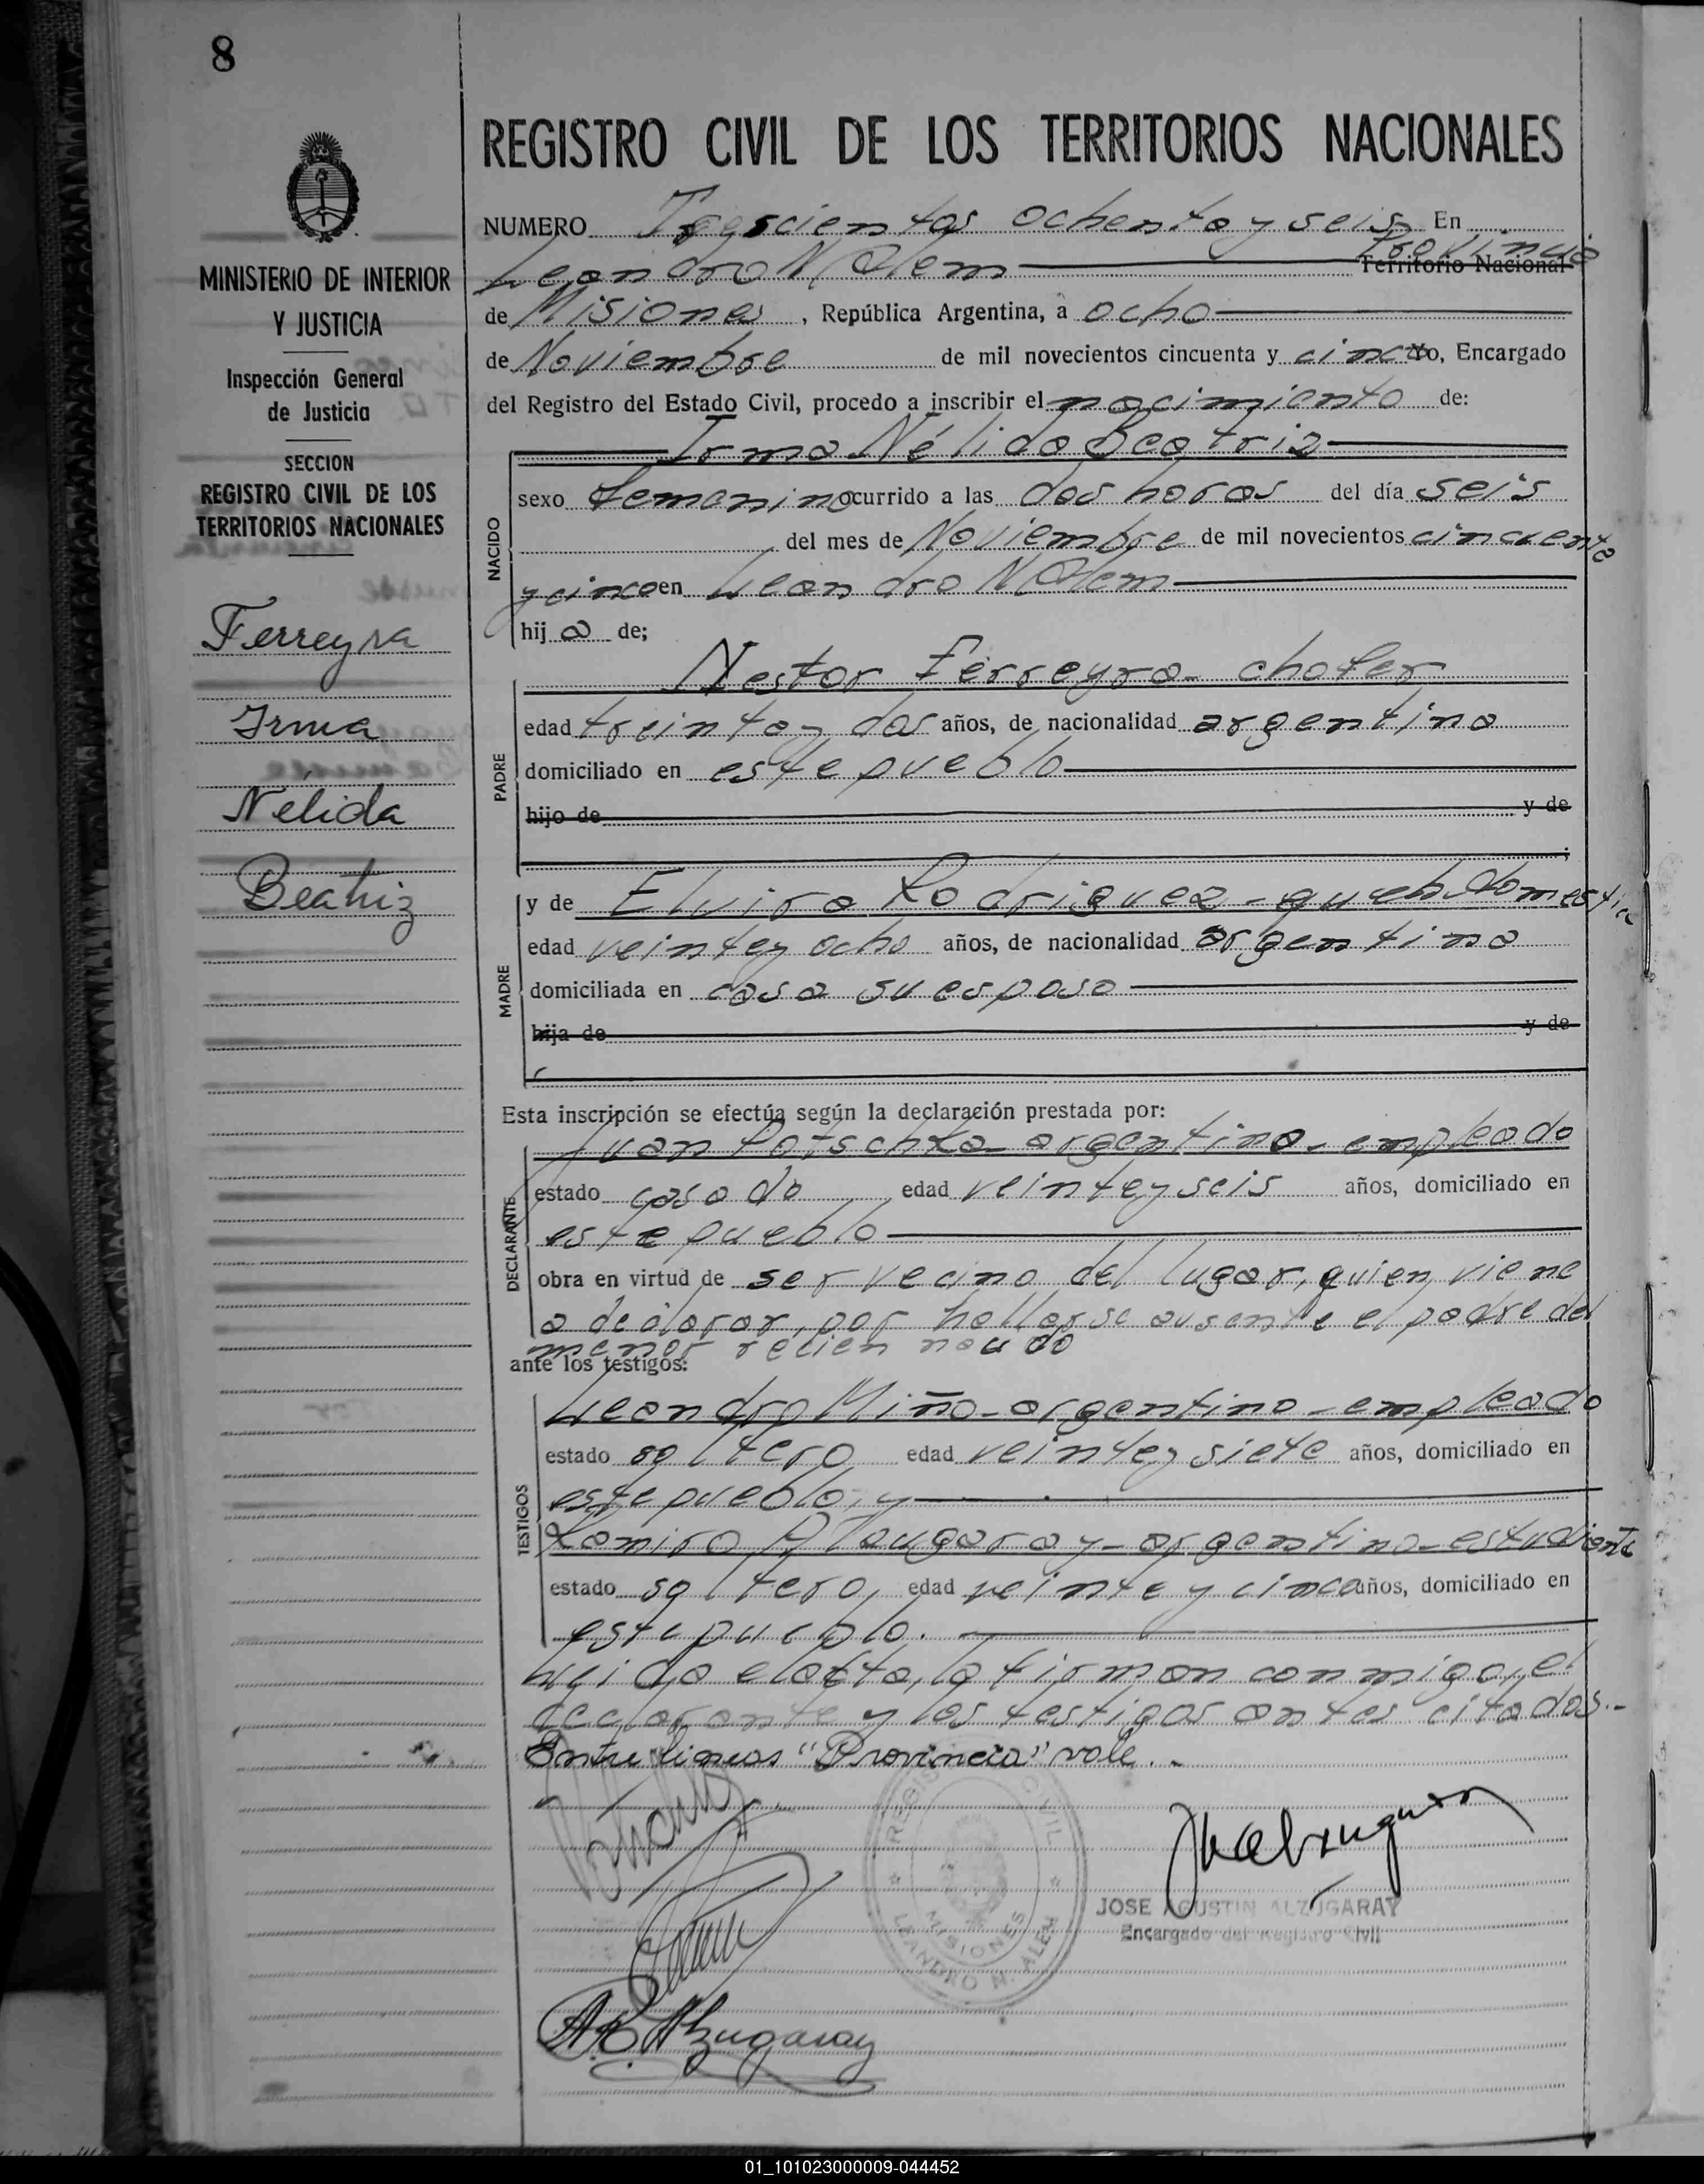 8
REGISTRO CIVIL DE LOS TERRITORIOS NACIONALES
MINISTERIO DE INTERIOR
Y JUSTICIA
Inspección General
de Justicia
SECCION
REGISTRO CIVIL DE LOS
TERRITORIOS NACIONALES
Ferreyra
Irma
Nélida
Beatriz
NUMERO Trescientos ochenta y seis En
Provincia
Leandro N Alem Territorio Nacional
de Misiones, República Argentina, a ocho
de Noviembre de mil novecientos cincuenta y cinco Yo, Encargado
del Registro del Estado Civil, procedo a inscribir el nacimiento de:
Irma Nélida Beatriz
NACIDO
sexo femenino ocurrido a las dos horas del día seis
del mes de Noviembre de mil novecientos cincuenta
y cinco en Leandro N Alem
hij a de;
PADRE
Nestor Ferreyra - chofer
edad treinta y dos años, de nacionalidad argentino
domiciliado en este pueblo
hijo de y de
MADRE
y de Elvira Rodriguez - domestic
edad veinte y ocho años, de nacionalidad argentina
domiciliada en casa su esposo
hija de y de
Esta inscripción se efectúa según la declaración prestada por:
DECLARANTE
Juan argentino - empleado
estado casado edad veinte y seis años, domiciliado en
este pueblo
obra en virtud de ser vecino del lugar, quien viene
a declarar, por hallarse ausente el padre del
menor recien nacido
ante los testigos:
TESTIGOS
Leandro Miño - argentino - empleado
estado soltero edad veinte y siete años, domiciliado en
este pueblo, y
Ramiro Alzugaray - argentino - estudiante
estado soltero, edad veinte y cinco años, domiciliado en
este pueblo.
Leida el acta, la firman conmigo, el
declarante y los testigos antes citados.-
Entre lineas "Provincia" vale.-
REGISTRO CIVIL
MISIONES
LEANDRO N. ALEM
JOSE AGUSTIN ALZUGARAY
Encargado del Registro Civil
Alzugaray
01_101023000009-044452